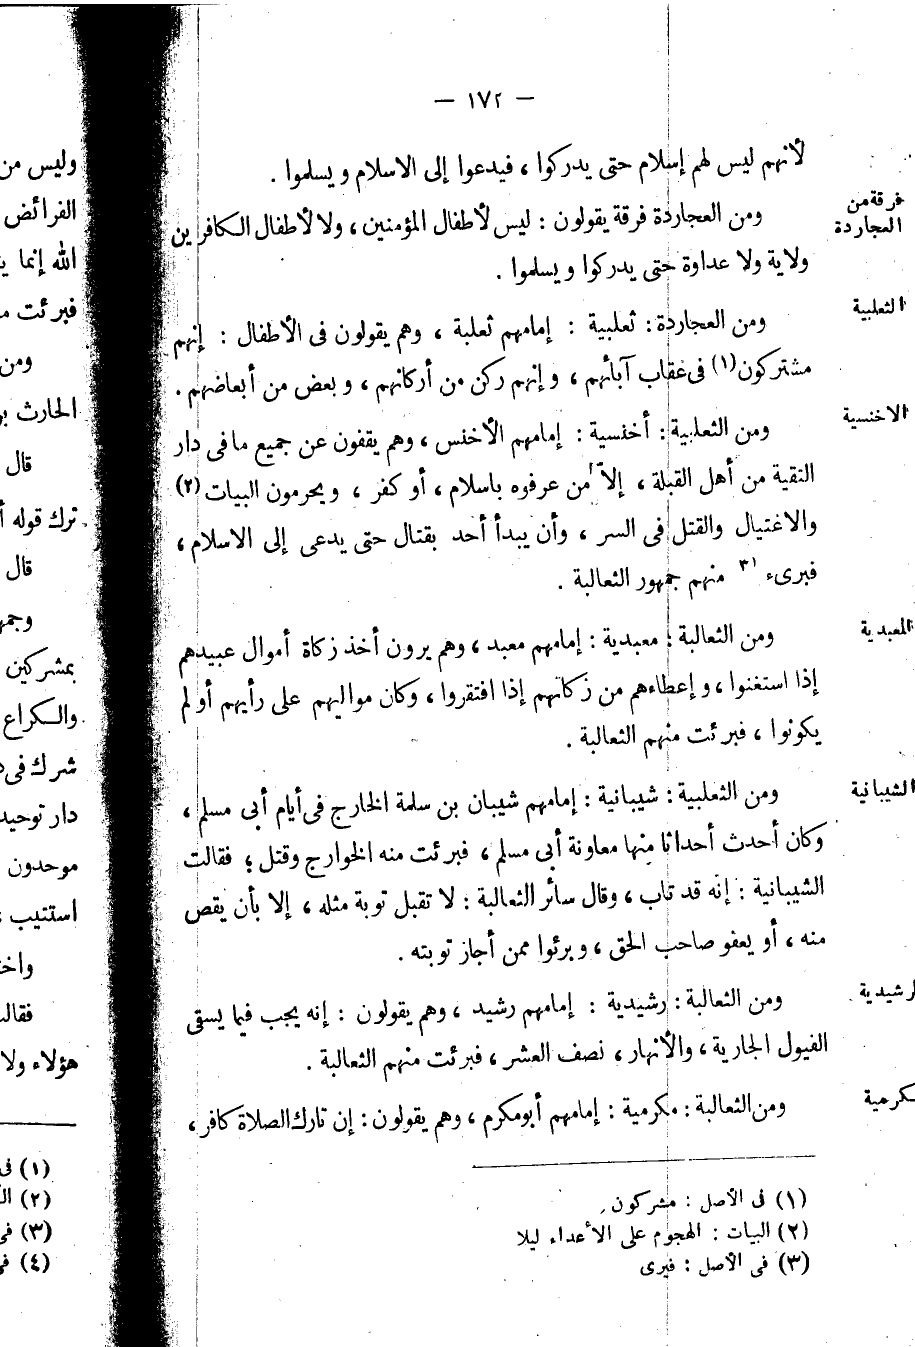 — ١٧٢ —
لأنهم ليس لهم إسلام حتى يدركوا ، فيدعوا إلى الاسلام ويسلموا .
فرقة من
العجاردة
ومن العجاردة فرقة يقولون : ليس لأطفال المؤمنين ، ولا لأطفال الكافرين
ولاية ولا عداوة حتى يدركوا ويسلموا .
الثعلبية
ومن العجاردة : ثعلبية : إمامهم ثعلبة ، وهم يقولون فى الأطفال : إنهم
مشتركون (١) فى عقاب آبائهم ، وإنهم ركن من أركانهم ، وبعض من أبعاضهم .
الاخنسية
ومن الثعلبية : أخنسية : إمامهم الأخنس ، وهم يقفون عن جميع ما فى دار
التقية من أهل القبلة ، إلا من عرفوه باسلام ، أو كفر ، ويحرمون البيات (٢)
والاغتيال والقتل فى السر ، وأن يبدأ أحد بقتال حتى يدعى إلى الاسلام ،
فبرىء ٣ منهم جمهور الثعالبة .
المعبدية
ومن الثعالبة : معبدية : إمامهم معبد ، وهم يرون أخذ زكاة أموال عبيدهم
إذا استغنوا ، وإعطاءهم من زكاتهم إذا افتقروا ، وكان مواليهم على رأيهم أو لم
يكونوا ، فبرئت منهم الثعالبة .
الشيبانية
ومن الثعلبية : شيبانية : إمامهم شيبان بن سلمة الخارج فى أيام أبى مسلم ،
وكان أحدث أحداثا منها معاونة أبى مسلم ، فبرئت منه الخوارج وقتل ؛ فقالت
الشيبانية : إنه قد تاب ، وقال سائر الثعالبة : لا تقبل توبة مثله ، إلا بأن يقص
منه ، أو يعفو صاحب الحق ، وبرئوا ممن أجاز توبته .
لرشيدية
ومن الثعالبة : رشيدية : إمامهم رشيد ، وهم يقولون : إنه يجب فيما يسقى
الفيول الجارية ، والأنهار ، نصف العشر ، فبرئت منهم الثعالبة .
كرمية
ومن الثعالبة : مكرمية : إمامهم أبو مكرم ، وهم يقولون : إن تارك الصلاة كافر ،
(١) فى الأصل : مشركون
(٢) البيات : الهجوم على الأعداء ليلا
(٣) فى الأصل : فيرى
وليس من
الفرائض
الله إنما
فبرئت
ومن
الحارث
قال
ترك قوله
قال
بمشركين
والكراع
شرك فى
دار توحيد
موحدون
استتيب
فقالت
هؤلاء ولا
(١) فى
(٢)
(٣) فى
(٤)